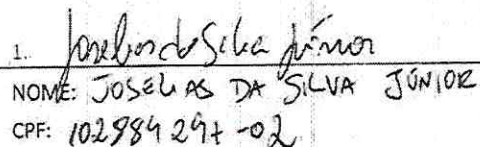 1. Joselias da Silva Júnior
NOME: JOSELIAS DA SILVA JÚNIOR
CPF: 102984297-02